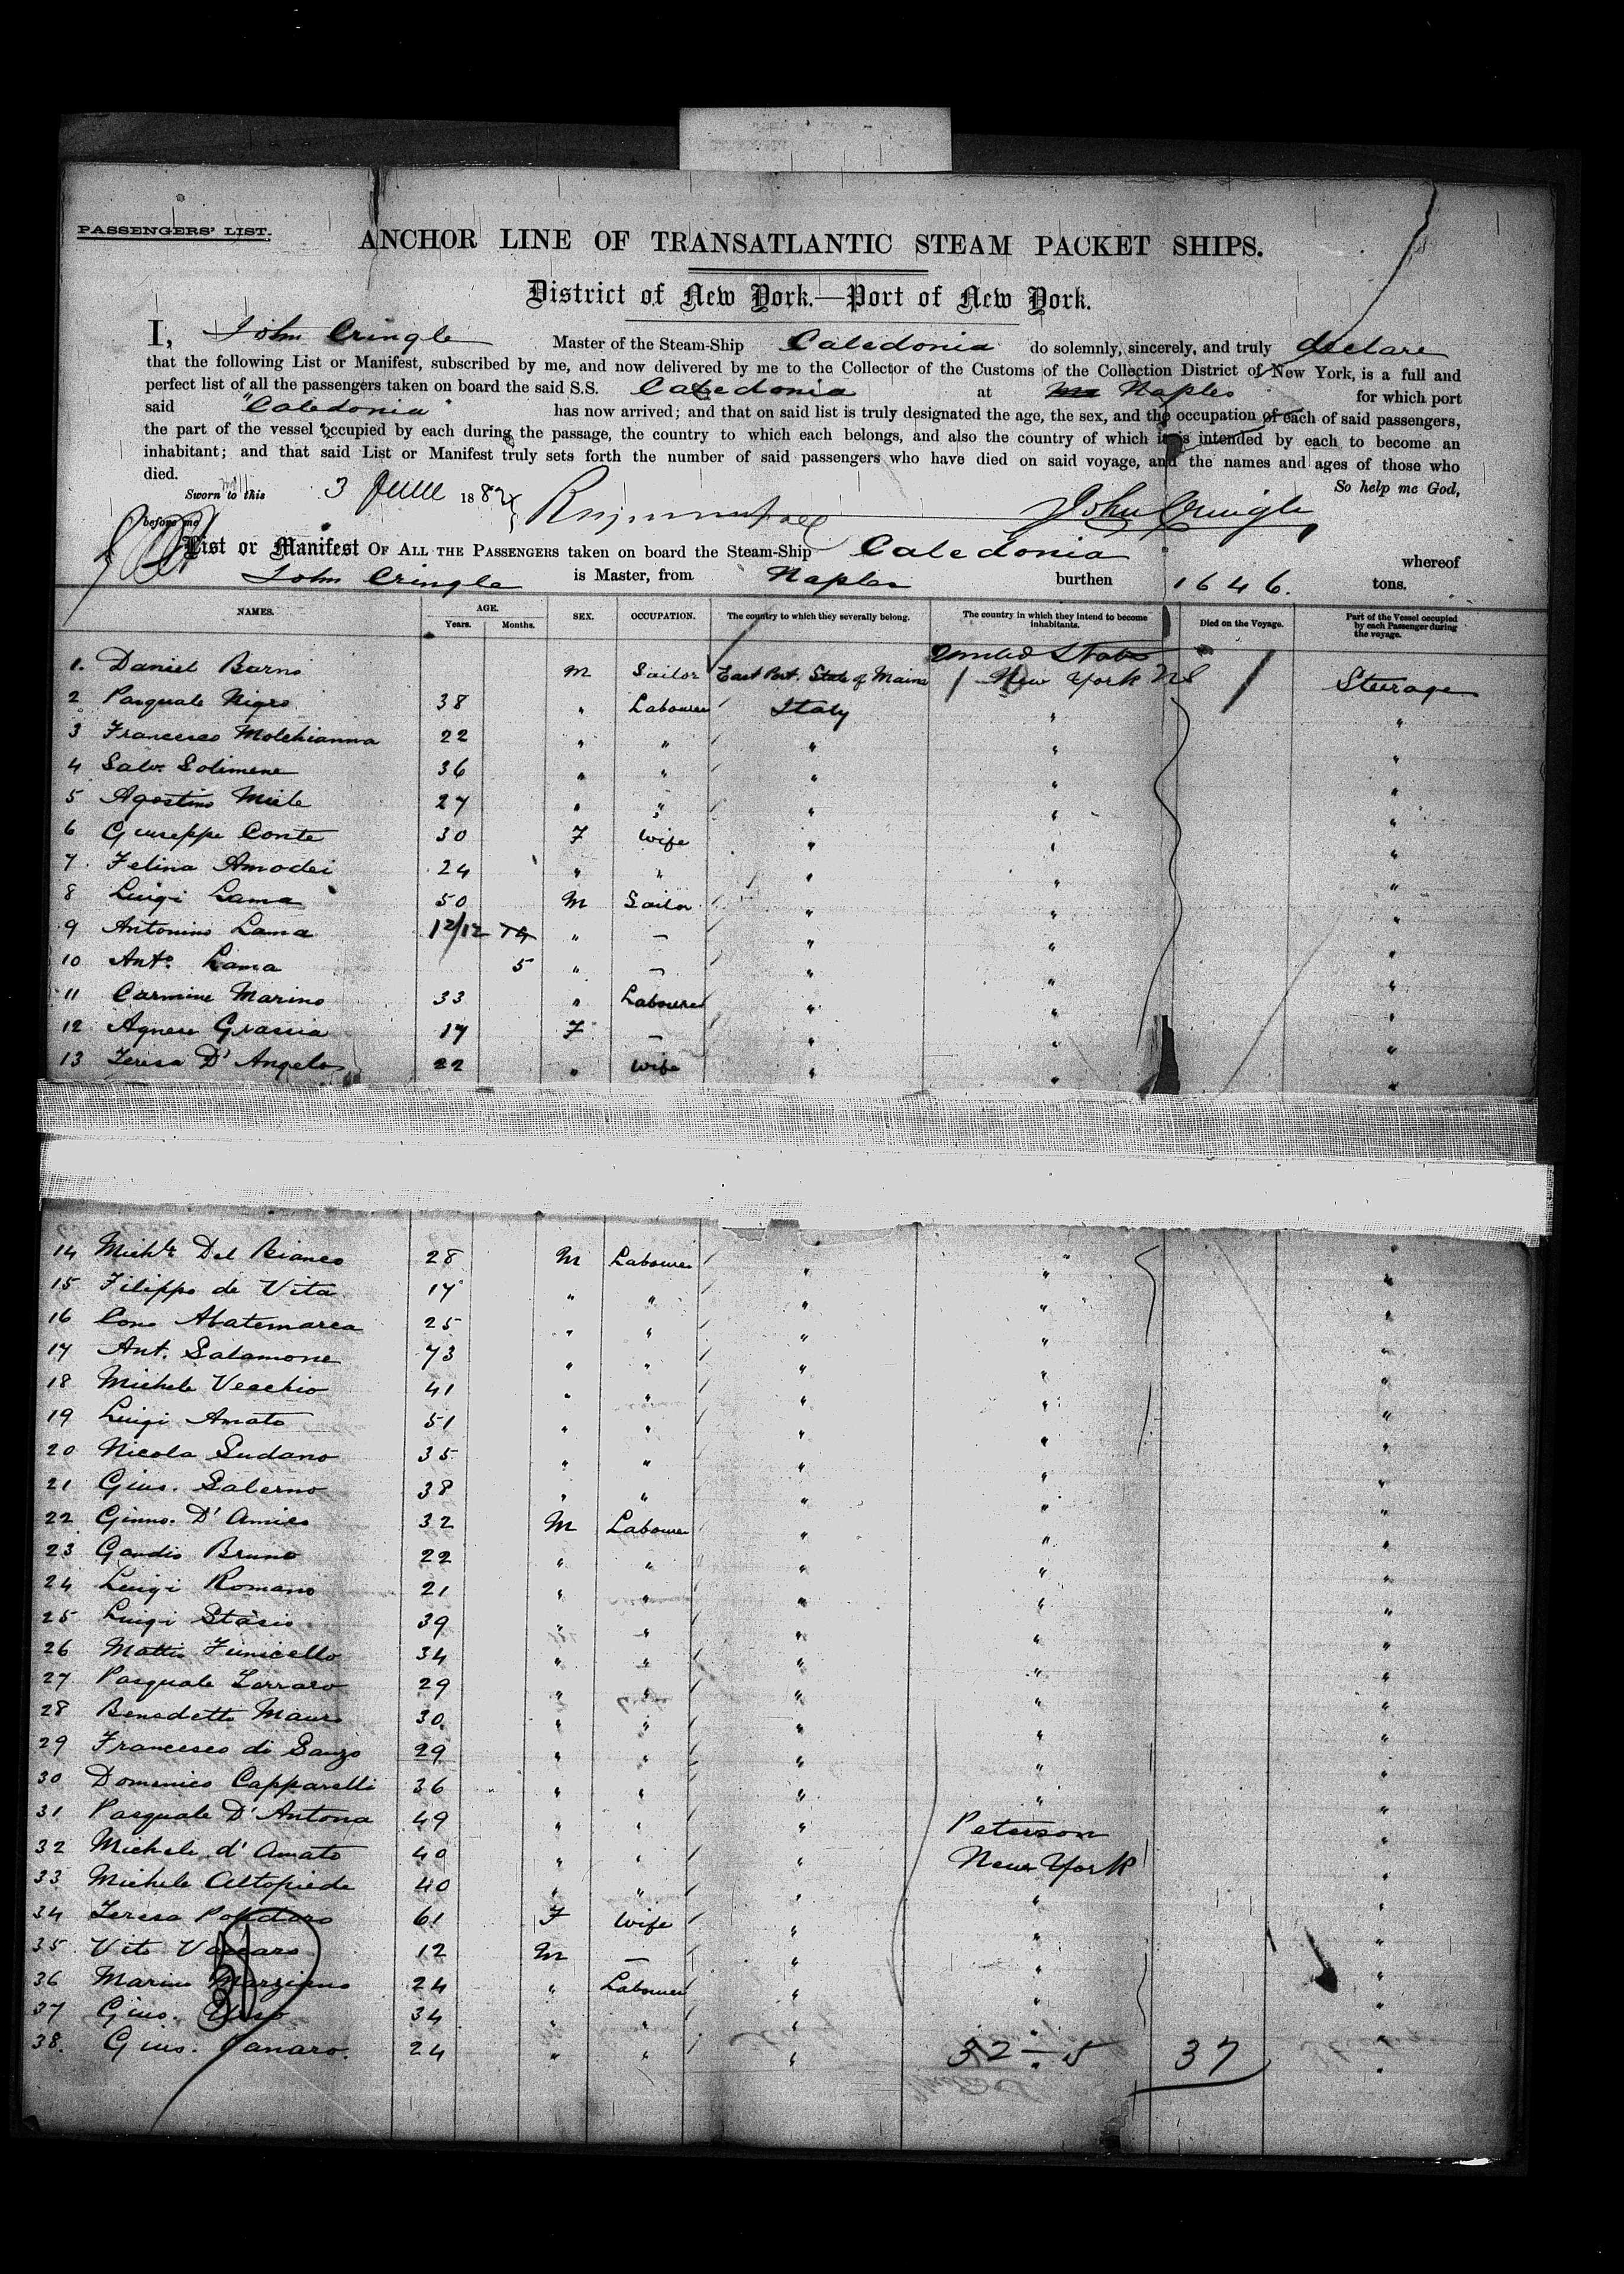 PASSENGERS' LIST.
ANCHOR LINE OF TRANSATLANTIC STEAM PACKET SHIPS.
District of New York.—Port of New York.
I, John Cringle Master of the Steam-Ship Caledonia do solemnly, sincerely, and truly declare
that the following List or Manifest, subscribed by me, and now delivered by me to the Collector of the Customs of the Collection District of New York, is a full and
perfect list of all the passengers taken on board the said S.S. Caledonia at Naples for which port
said "Caledonia" has now arrived; and that on said list is truly designated the age, the sex, and the occupation of each of said passengers,
the part of the vessel occupied by each during the passage, the country to which each belongs, and also the country of which it is intended by each to become an
inhabitant; and that said List or Manifest truly sets forth the number of said passengers who have died on said voyage, and the names and ages of those who
died. So help me God,
Sworn to this 3 June 1882 John Cringle
before me
List or Manifest OF ALL THE PASSENGERS taken on board the Steam-Ship Caledonia whereof
John Cringle is Master, from Naples burthen 1646. tons.
NAMES. AGE. Years. Months. SEX. OCCUPATION. The country to which they severally belong. The country in which they intend to become inhabitants. Died on the Voyage. Part of the Vessel occupied by each Passenger during the voyage.
United States
1. Daniel Barno M Sailor East Port. State of Maine New York Steerage
2 Pasquale Nigro 38 " Labourer Italy " "
3 Francesco Molchianna 22 " " " " "
4 Salv. Solimene 36 " " " " "
5 Agostino Miele 27 " " " " "
6 Giuseppe Conte 30 F Wife " " "
7 Felina Amodei 24 " " " " "
8 Luigi Lama 50 M Sailor " " "
9 Antonino Lama 12/12 " — " " "
10 Anto. Lama 5 " — " " "
11 Carmine Marino 33 " Labourer " " "
12 Agnese Grassia 17 F — " " "
13 Teresa D'Angelo 22 " Wife " " "
14 Michle Del Bianco 28 M Labourer " " "
15 Filippo de Vita 17 " " " " "
16 Cono Abatemarca 25 " " " " "
17 Ant. Salamone 73 " " " " "
18 Michele Vecchio 41 " " " " "
19 Luigi Amato 51 " " " " "
20 Nicola Sudano 35 " " " " "
21 Gius. Salerno 38 " " " " "
22 Ginno. D'Amico 32 M Labourer " " "
23 Gaudio Bruno 22 " " " " "
24 Luigi Romano 21 " " " " "
25 Luigi Stasio 39 " " " " "
26 Mattis Funicello 34 " " " " "
27 Pasquale Lorraro 29 " " " " "
28 Benedetto Mauro 30 " " " " "
29 Francesco di Sanzo 29 " " " " "
30 Domenico Capparelli 36 " " " " "
31 Pasquale D'Antona 49 " " " Peterson "
32 Michele d'Amato 40 " " " New York "
33 Michele Altopiede 40 " " " " "
34 Teresa 61 F Wife " " "
35 Vito Vaccaro 12 M — " " "
36 Marino Marziano 24 " Labourer " " "
37 Gius. 34 " " " " "
38. Gius. Canaro. 24 " " " " "
32 — 5 37